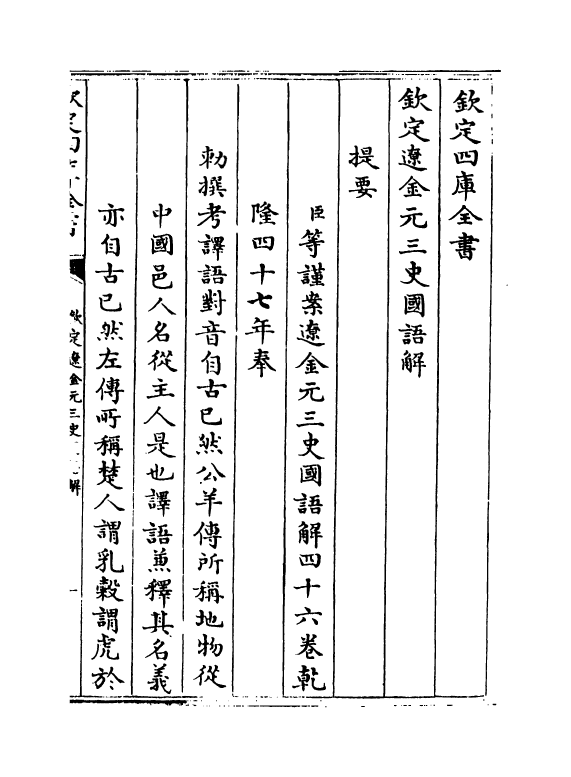 欽定四庫全書
欽定遼金元三史國語解
提要
臣等謹案遼金元三史國語解四十六卷乾
隆四十七年奉
勅撰考譯語對音自古已然公羊傳所稱地物從
中國邑人名從主人是也譯語兼釋其名義
亦自古已然左傳所稱楚人謂乳榖謂虎於
欽定四庫全書
欽定遼金元三史 解
一